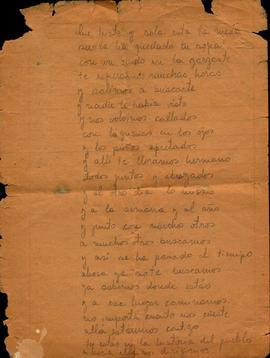 que triste y sola está la mesa
ha quedado tu sopa
con un nudo en la garganta
te esperamos muchas horas
y salimos a buscarte
y nadie te había visto
y nos volvimos callados
con lágrimas en los ojos
y los puños apretados
y allí te lloramos hermano
todos juntos y abrazados
y al otro día lo mismo
y a la semana y al año
y junto con muchos otros
a muchos otros buscamos
y así se ha pasado el tiempo
ahora ya no te buscamos
ya sabemos donde estás
y a ese lugar caminamos
no importa cuanto nos cueste
allá estaremos
tu estás en la historia del pueblo
hacia allá nos dirigimos